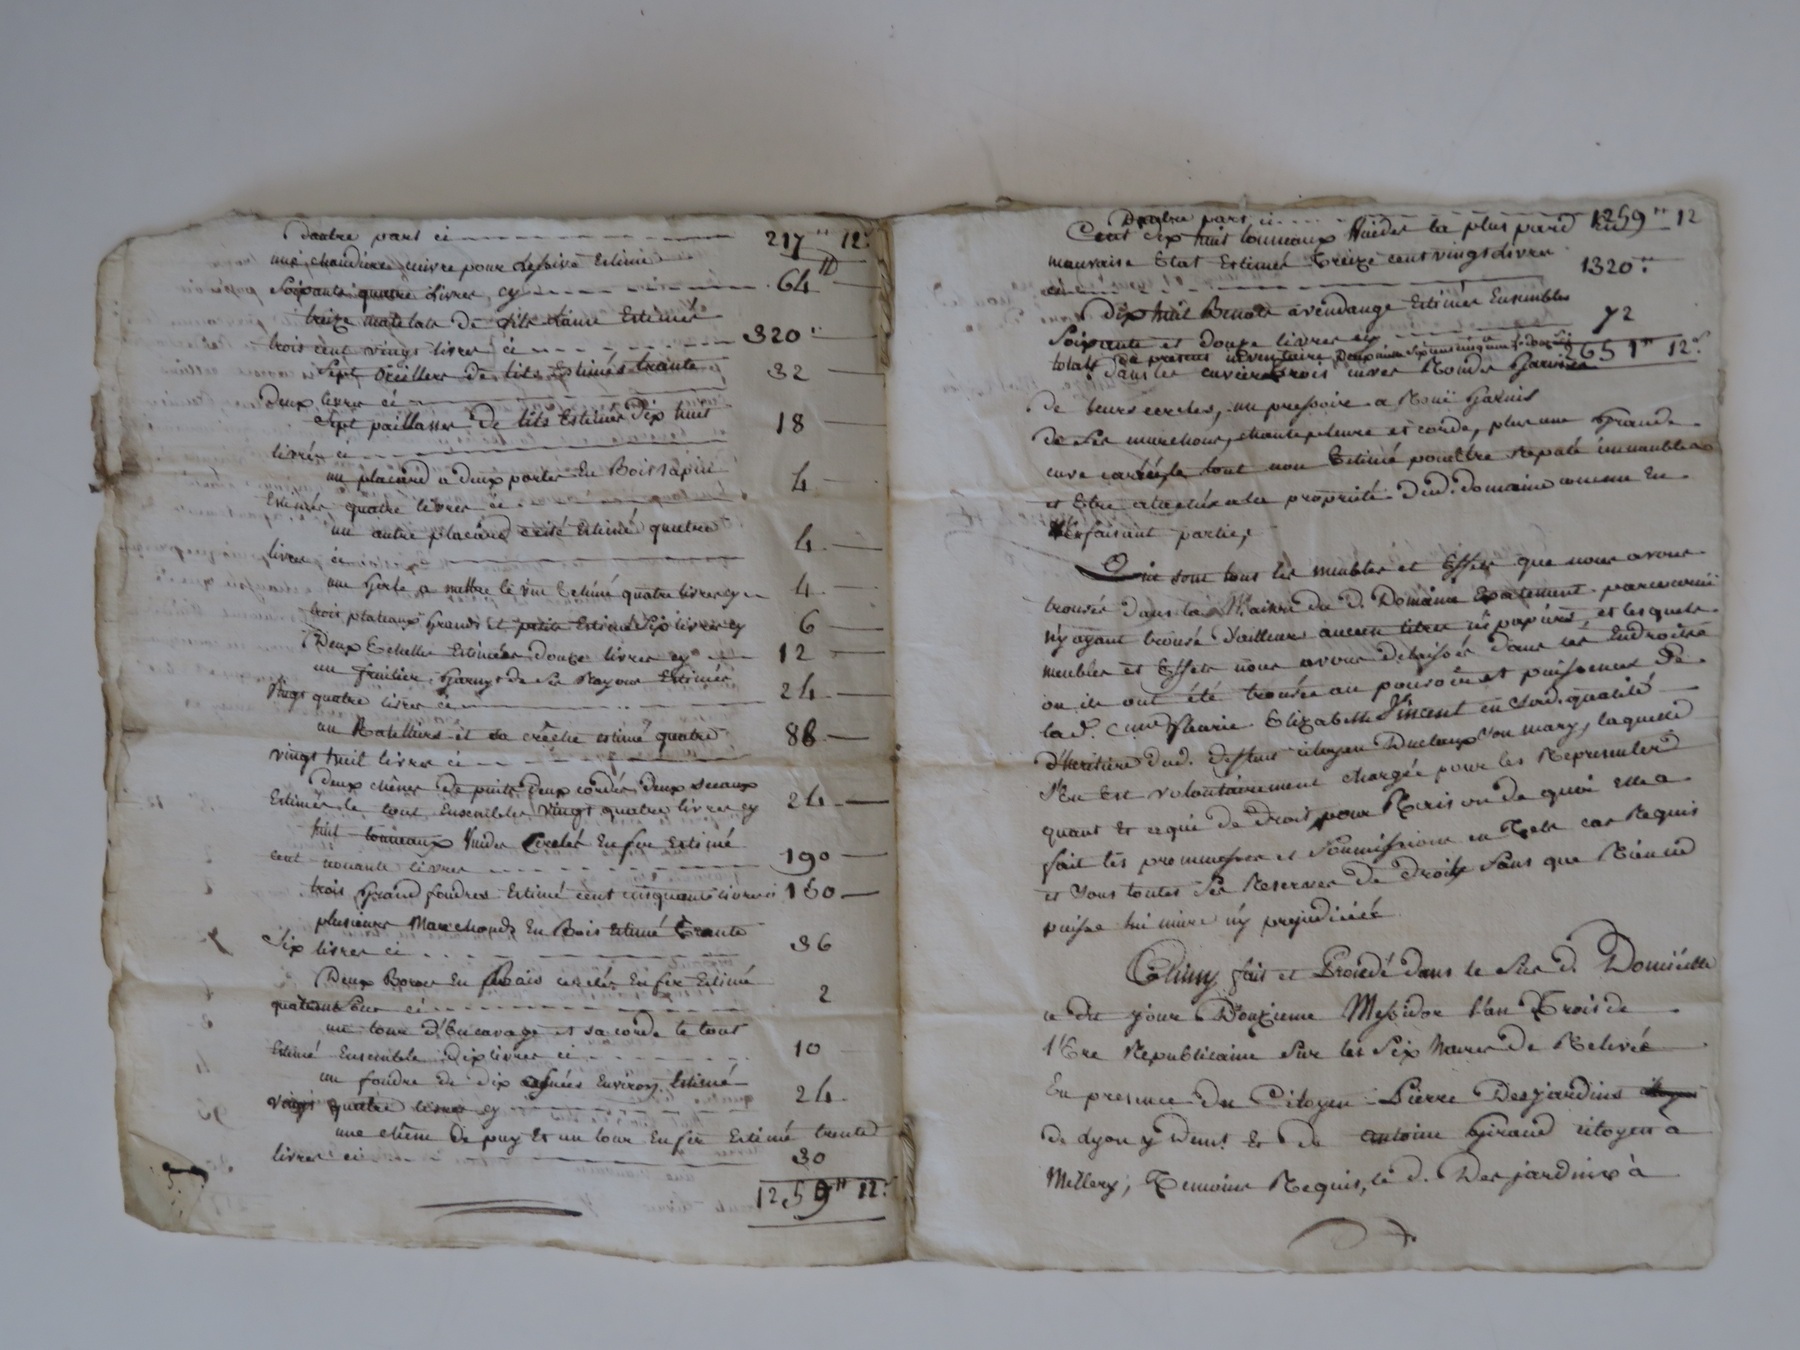 Dautre part ci 217" 12ˢ
une chaudiere cuivre pour Lessive Estimé
Soixante quatre Livres cy 64"
treize matelats de lits Laine Estimés
trois cent vingt livres ci 320"
Sept Oreillers de lits Estimés trante 32
Deux livres ci
Sept paillasses de lits Estimés Dix huit 18
livres ci
un placard a deux portes En Bois sapin 4
Estimés quatre livres ci
un autre placard Estimé quatre
livres ci 4
une a mettre le vin Estimé quatre livres cy 4
trois plateaux Grands Et petits Estimé Six livres cy 6
Deux Echelles Estimées douze livres cy 12
un fruitier, Garny de Ses Rayons Estimés
Vingt quatre livres ci 24
un Ratelliers et sa crêche estimé quatre 88
vingt huit livres ci
Deux chênes de puits Deux cordes, deux Seeaux
Estimés le tout Ensembles Vingt quatre livres cy 24
huit tonneaux Vuides Cerclés En fer Estimé
cent nonante livres 190
trois Grand foudres Estimé cent cinquante livres ci 150
plusieurs Marchands En Bois Estimé trante
Six livres ci 36
Deux En Bois cerclés En fer Estimé
ci 2
un tour d'Encavage et sa corde le tout
Estimé Ensemble Dix livres ci 10
un foudre de dix asnées Environ Estimé
vingt quatre livres cy 24
une chêne de puy Et un tour En fer Estimé trente
livres ci 30
1259" 12ˢ
Dautre part ci 1259" 12
Cent Dix huit tonneaux Vuides la plus pard En
mauvais Etat Estimés Treize cent vingt Livres
ci 1320"
Dix huit Benots a vendange Estimés Ensembles
Soixante et douze livres cy 72
totals du present inventaire 2651" 12ˢ
dans les cuviers trois cuves Rondes Garnies
de leurs cercles, un pressoire a Roüe Garnis
de Ses marchons, chantepleure et corde, plus une Grande
cuve carrée, le tout non Estimé pour être Reputé immeubles
et Etre attachés a la propriété Dud. domaine comme En
Enfaisant partie,
Qui sont tous les meubles et Effets que nous avons
trouvés dans la Maison du d. Domaine Exatement parcouruë
n'y ayant trouvé d'ailleurs aucun titres ni papiers, et lesquels
meubles et Effets nous avons délaissés dans les Endroits
ou ils ont été trouvés au pouvoir et puissances De
la d. Cnne fleurie Elizabeth Vincent en Sad. qualité
D'heritiere dud. deffunt citoyen Duclaux Son mary, laquelle
S'En Est volontairement chargée pour les Representer
quant Et a qui de Droit, pour Raison de quoi Elle a
fait les promesses et Soumissions en Tels cas Requis
et Sous toutes Ses Reserves de Droits Sans que Rien ne
puisse lui nuire n'y prejudicier
fait et Procédé dans le Sus d. Domicille
ce du jour D'ouzieme Messidor l'an Trois de
l'Ere Republicaine Sur les Six heures de Relevée
En presence du Citoyen Pierre Desjardins
de Lyon y demt. Et de antoine Giraud citoyen a
Millery, Temoins Requis, le d. Desjardins à